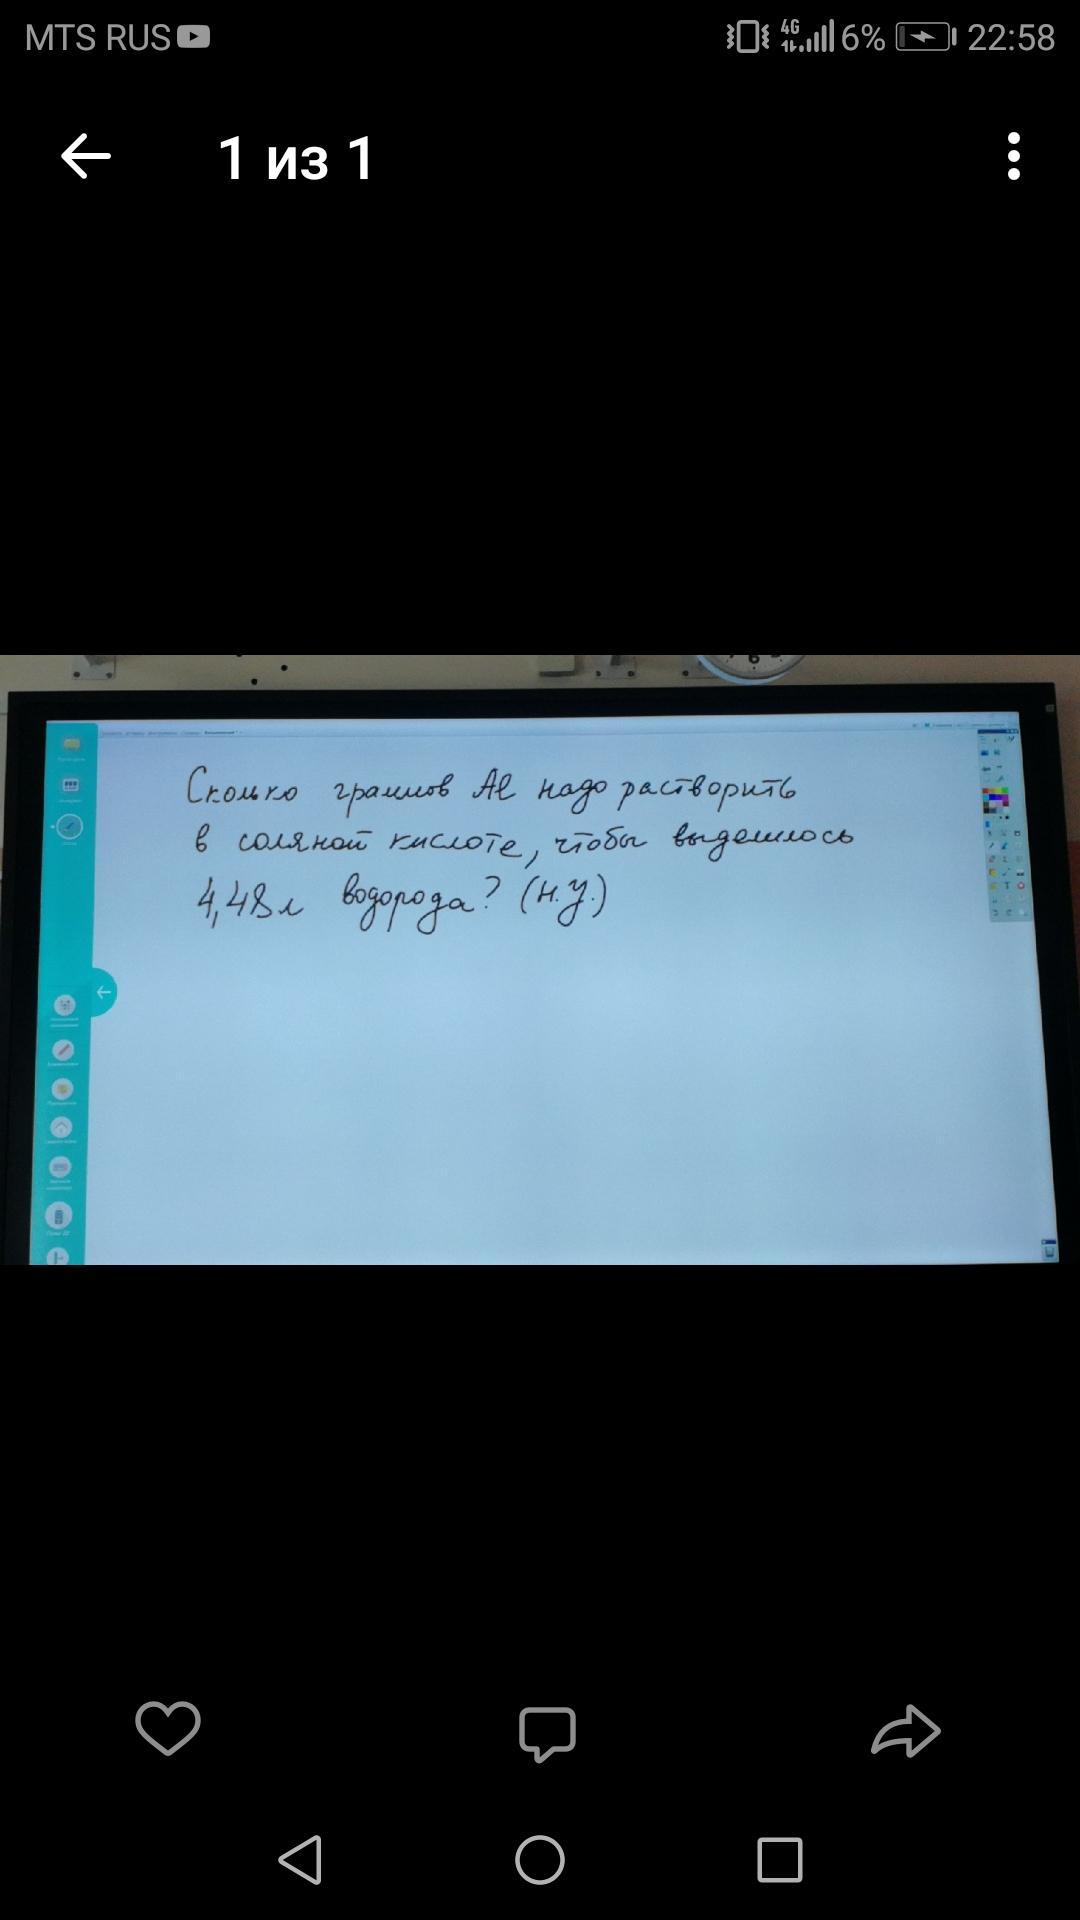 MTS RUS 4G 6% 22:58
1 из 1
Сколько граммов Al надо растворить
в соляной кислоте, чтобы выделилось
4,48л водорода? (н.у.)